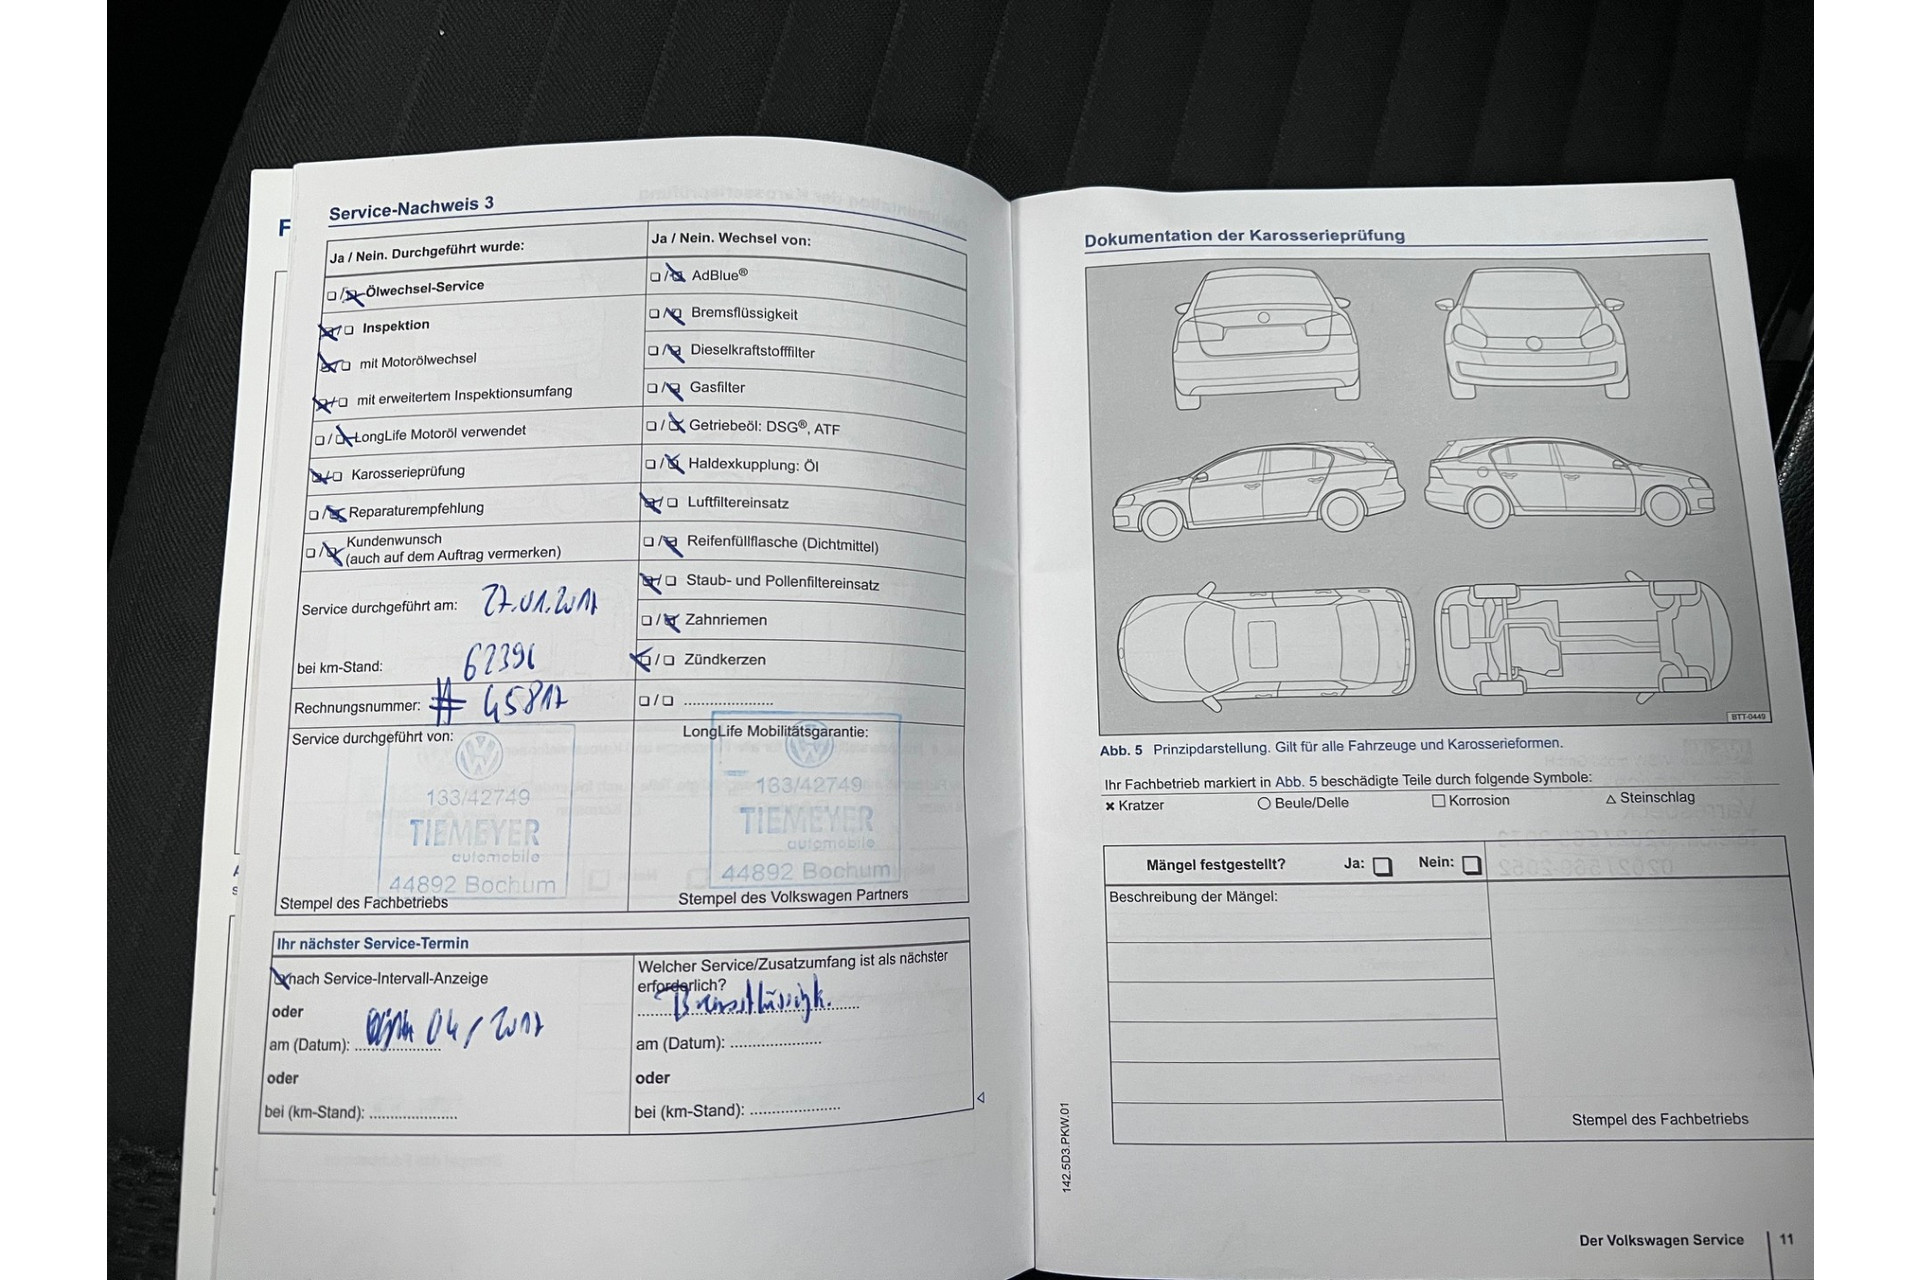 F
Service-Nachweis 3
Ja / Nein. Durchgeführt wurde:
Ölwechsel-Service
Inspektion
mit Motorölwechsel
mit erweitertem Inspektionsumfang
LongLife Motoröl verwendet
Karosserieprüfung
Reparaturempfehlung
Kundenwunsch
(auch auf dem Auftrag vermerken)
Service durchgeführt am: 27.01.2017
bei km-Stand: 62396
Rechnungsnummer: # 45817
Service durchgeführt von:
133/42749
TIEMEYER
automobile
44892 Bochum
Stempel des Fachbetriebs
Ja / Nein. Wechsel von:
AdBlue®
Bremsflüssigkeit
Dieselkraftstofffilter
Gasfilter
Getriebeöl: DSG®, ATF
Haldexkupplung: Öl
Luftfiltereinsatz
Reifenfüllflasche (Dichtmittel)
Staub- und Pollenfiltereinsatz
Zahnriemen
Zündkerzen
LongLife Mobilitätsgarantie:
133/42749
TIEMEYER
automobile
44892 Bochum
Stempel des Volkswagen Partners
Ihr nächster Service-Termin
nach Service-Intervall-Anzeige
oder
am (Datum): 04/2017
oder
bei (km-Stand):
Welcher Service/Zusatzumfang ist als nächster
erforderlich?
Bremsflüssigk.
am (Datum):
oder
bei (km-Stand):
Dokumentation der Karosserieprüfung
BTT-0449
Abb. 5 Prinzipdarstellung. Gilt für alle Fahrzeuge und Karosserieformen.
Ihr Fachbetrieb markiert in Abb. 5 beschädigte Teile durch folgende Symbole:
× Kratzer ○ Beule/Delle □ Korrosion △ Steinschlag
Mängel festgestellt? Ja: Nein:
Beschreibung der Mängel:
Stempel des Fachbetriebs
142.5D3.PKW.01
Der Volkswagen Service 11